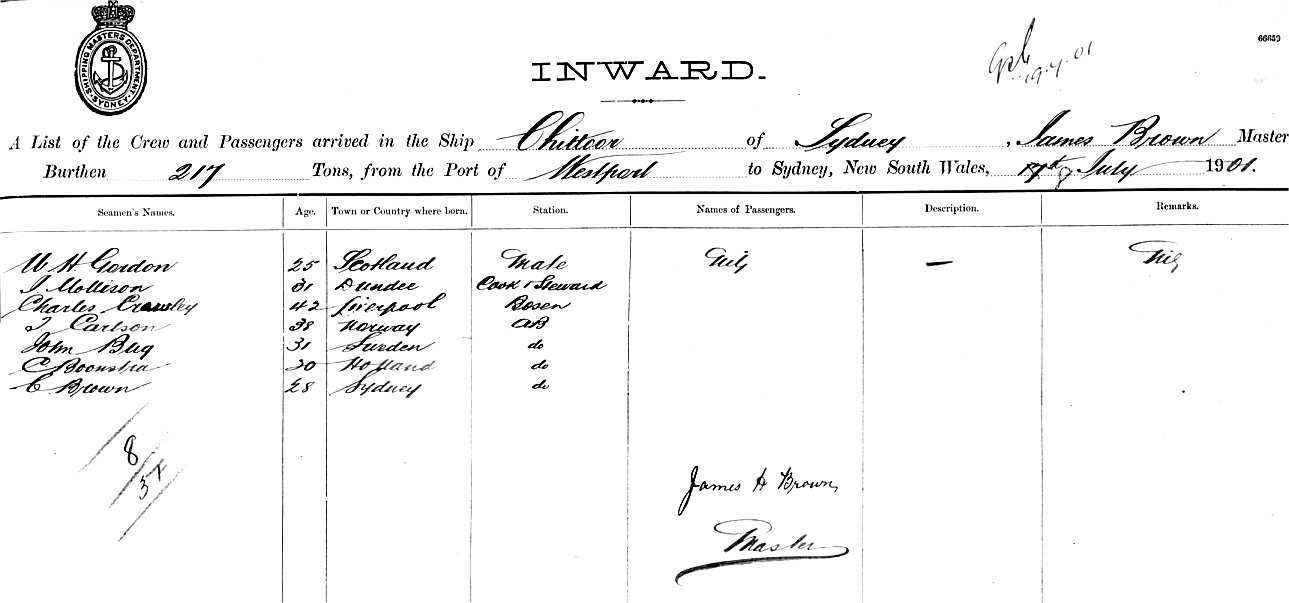 SHIPPING MASTERS DEPARTMENT
SYDNEY
66659
19.7.01
INWARD.
A List of the Crew and Passengers arrived in the Ship Chittoor of Sydney, James Brown Master
Burthen 217 Tons, from the Port of Westport to Sydney, New South Wales, July 1901.
Seamen's Names. Age. Town or Country where born. Station. Names of Passengers. Description. Remarks.
W H Gordon 25 Scotland Mate Nil — Nil
J Mollison 31 Dundee Cook & Steward
Charles Crawley 42 Liverpool Bosen
J Carlson 38 Norway AB
John 31 Sweden do
C Boonstra 30 Holland do
C Brown 28 Sydney do
8
James H Brown
Master